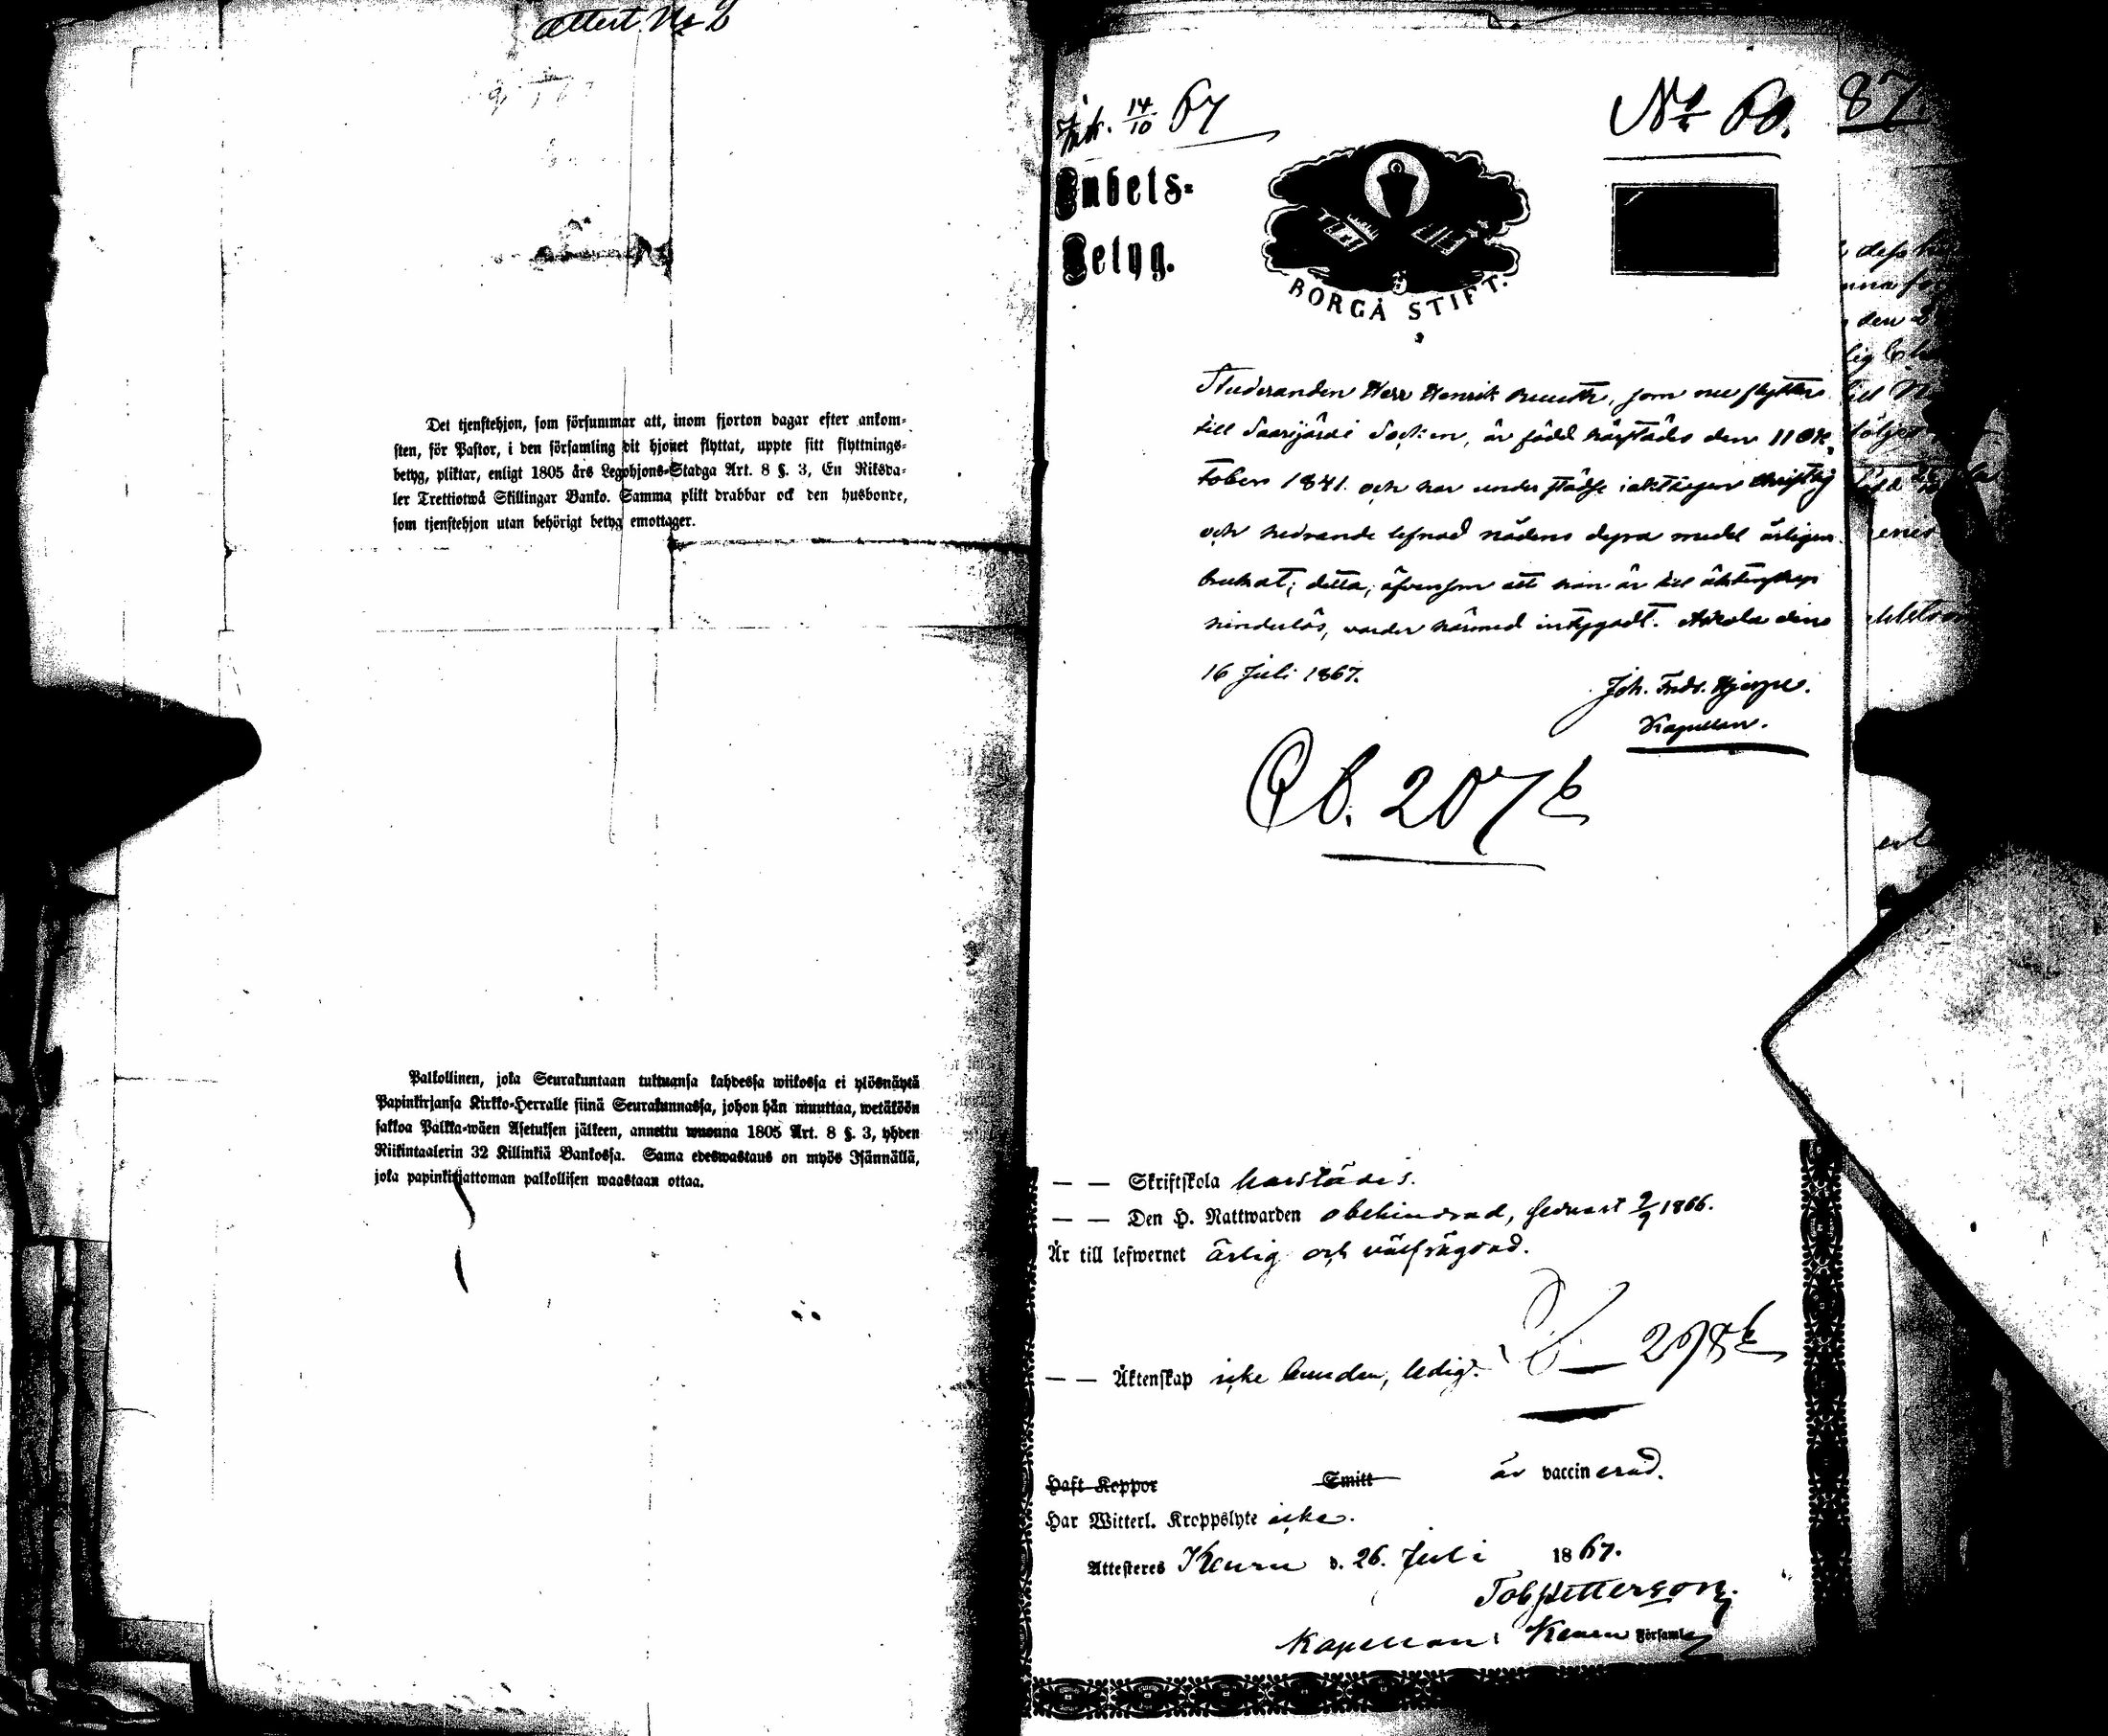 Attest. No 2
Det tjenstehjon, som försummar att, inom fjorton dagar efter ankom-
sten, för Pastor, i den församling dit hjonet flyttat, uppte sitt flyttnings-
betyg, pliktar, enligt 1805 års Legohjons-Stadga Art. 8 §. 3, En Riksda-
ler Trettiotwå Skillingar Banko. Samma plikt drabbar ock den husbonde,
som tjenstehjon utan behörigt betyg emottager.
Palkollinen, joka Seurakuntaan tultuansa kahdessa wiikossa ei ylösnäytä
Papinkirjansa Kirkko-Herralle siinä Seurakunnassa, johon hän muuttaa, wetäköön
sakkoa Palkka-wäen Asetuksen jälkeen, annettu wuonna 1805 Art. 8 §. 3, yhden
Riikintaalerin 32 Killinkiä Bankossa. Sama edeswastaus on myös Isännällä,
joka papinkirjattoman palkollisen waastaan ottaa.
Ink. 14/10 67
No 60.
87.
Embets-
Betyg.
BORGÅ STIFT.
Studeranden Herr Henrik , som nu flyttar
till Saarijärvi Socken, är född härstädes den 11 Ok-
tober 1841. och har under städse iakttagen christlig
och hedrande lefnad nådens dyra medel årligen
brukat; detta, äfvensom att han är till äktenskap
hinderlös, varder härmed intygadt. Askola den
16 Juli 1867.
Joh. Fredr. Hjerpe.
Kapellan.
Cb. 207 k
— — Skriftskola härstädes.
— — Den H. Nattwarden obehindrad, senast 2/9 1866.
Är till lefwernet ärlig och välfrägdad.
— — Äktenskap icke bunden, ledig.
Haft Koppor Smitt är vaccinerad.
Har Witterl. Kroppslyte icke.
Attesteres Keuru d. 26. Juli 1867.
Tob Petterson.
Kapellan i Keuru Församl.